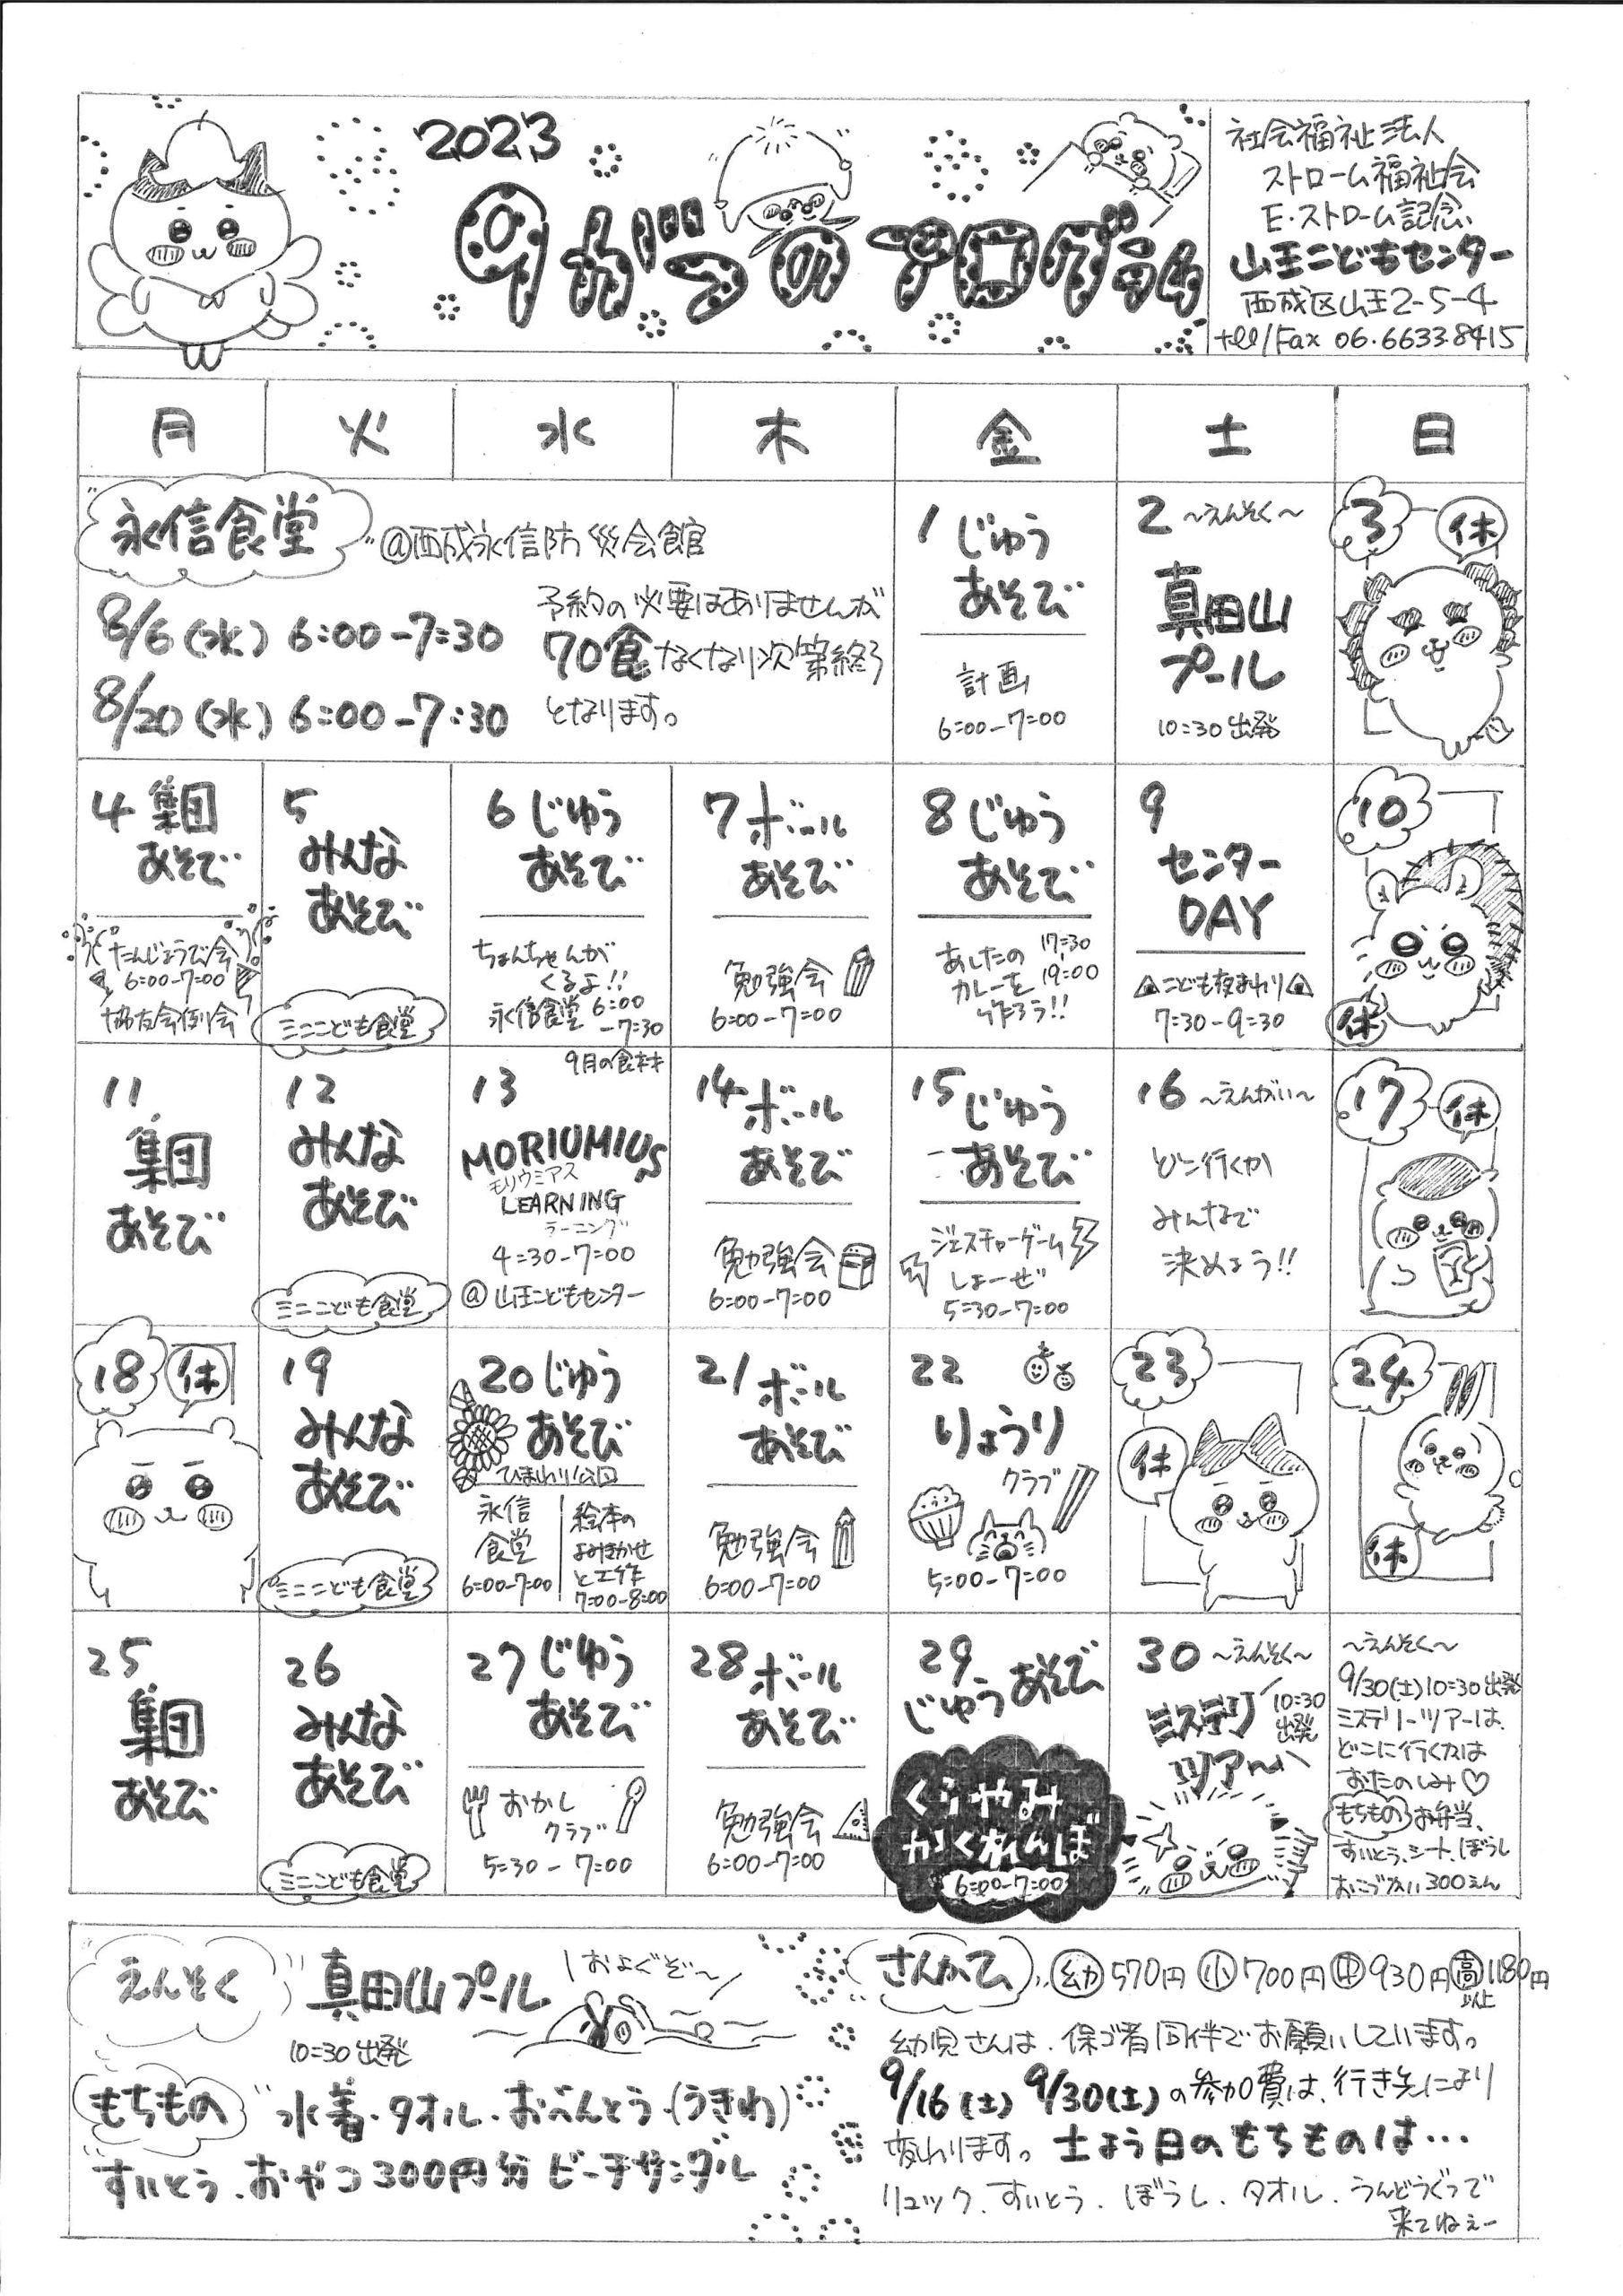 2023
9がつのプログラム
社会福祉法人
ストローム福祉会
E・ストローム記念
山王こどもセンター
西成区山王2-5-4
tel/Fax 06・6633・8415
月 火 水 木 金 土 日
永信食堂
@西成永信防災会館
8/6(水) 6:00-7:30
8/20(水) 6:00-7:30
予約の必要はありませんが
70食なくなり次第終了
となります。
1 じゆう
あそび
計画
6:00-7:00
2 ～えんそく～
真田山
プール
10:30出発
3 休
4 集団
あそび
たんじょうび会
6:00-7:00
協友会例会
5
みんな
あそび
ミニこども食堂
6 じゆう
あそび
ちょんちゃんが
くるよ!!
永信食堂 6:00
-7:30
7 ボール
あそび
勉強会
6:00-7:00
8 じゆう
あそび
あしたの
カレーを
作ろう!!
17:30
19:00
9
センター
DAY
こども夜まわり
7:30-9:30
10
休
11
集団
あそび
12
みんな
あそび
ミニこども食堂
9月の食キキ
13
MORIUMIUS
モリウミアス
LEARNING
ラーニング
4:30-7:00
@山王こどもセンター
14 ボール
あそび
勉強会
6:00-7:00
15 じゆう
あそび
ジェスチャーゲーム
しよーぜ
5:30-7:00
16 ～えんがい～
どこ行くか
みんなで
決めよう!!
17 休
18 休
19
みんな
あそび
ミニこども食堂
20 じゆう
あそび
ひまわり公園
永信
食堂
6:00-7:00
絵本の
よみきかせ
と工作
7:00-8:00
21 ボール
あそび
勉強会
6:00-7:00
22
りょうり
クラブ
5:00-7:00
23
休
24
休
25
集団
あそび
26
みんな
あそび
ミニこども食堂
27 じゆう
あそび
おかし
クラブ
5:30-7:00
28 ボール
あそび
勉強会
6:00-7:00
29
じゆうあそび
くらやみ
かくれんぼ
6:00-7:00
30 ～えんそく～
ミステリー
ツアー
10:30
出発
～えんそく～
9/30(土)10:30出発
ミステリーツアーは、
どこに行くかは
おたのしみ♡
もちもの お弁当、
すいとう、シート、ぼうし
おこづかい300えん
えんそく 真田山プール
およぐぞ～
10:30出発
もちもの 水着・タオル・おべんとう・(うきわ)
すいとう、おやつ300円分 ビーチサンダル
さんかひ 幼570円 小700円 中930円 高1180円
以上
幼児さんは、保ゴ者同伴でお願いしています。
9/16(土) 9/30(土)の参加費は、行き先により
変わります。土よう日のもちものは…
リュック、すいとう、ぼうし、タオル、うんどうぐつで
来てねぇー